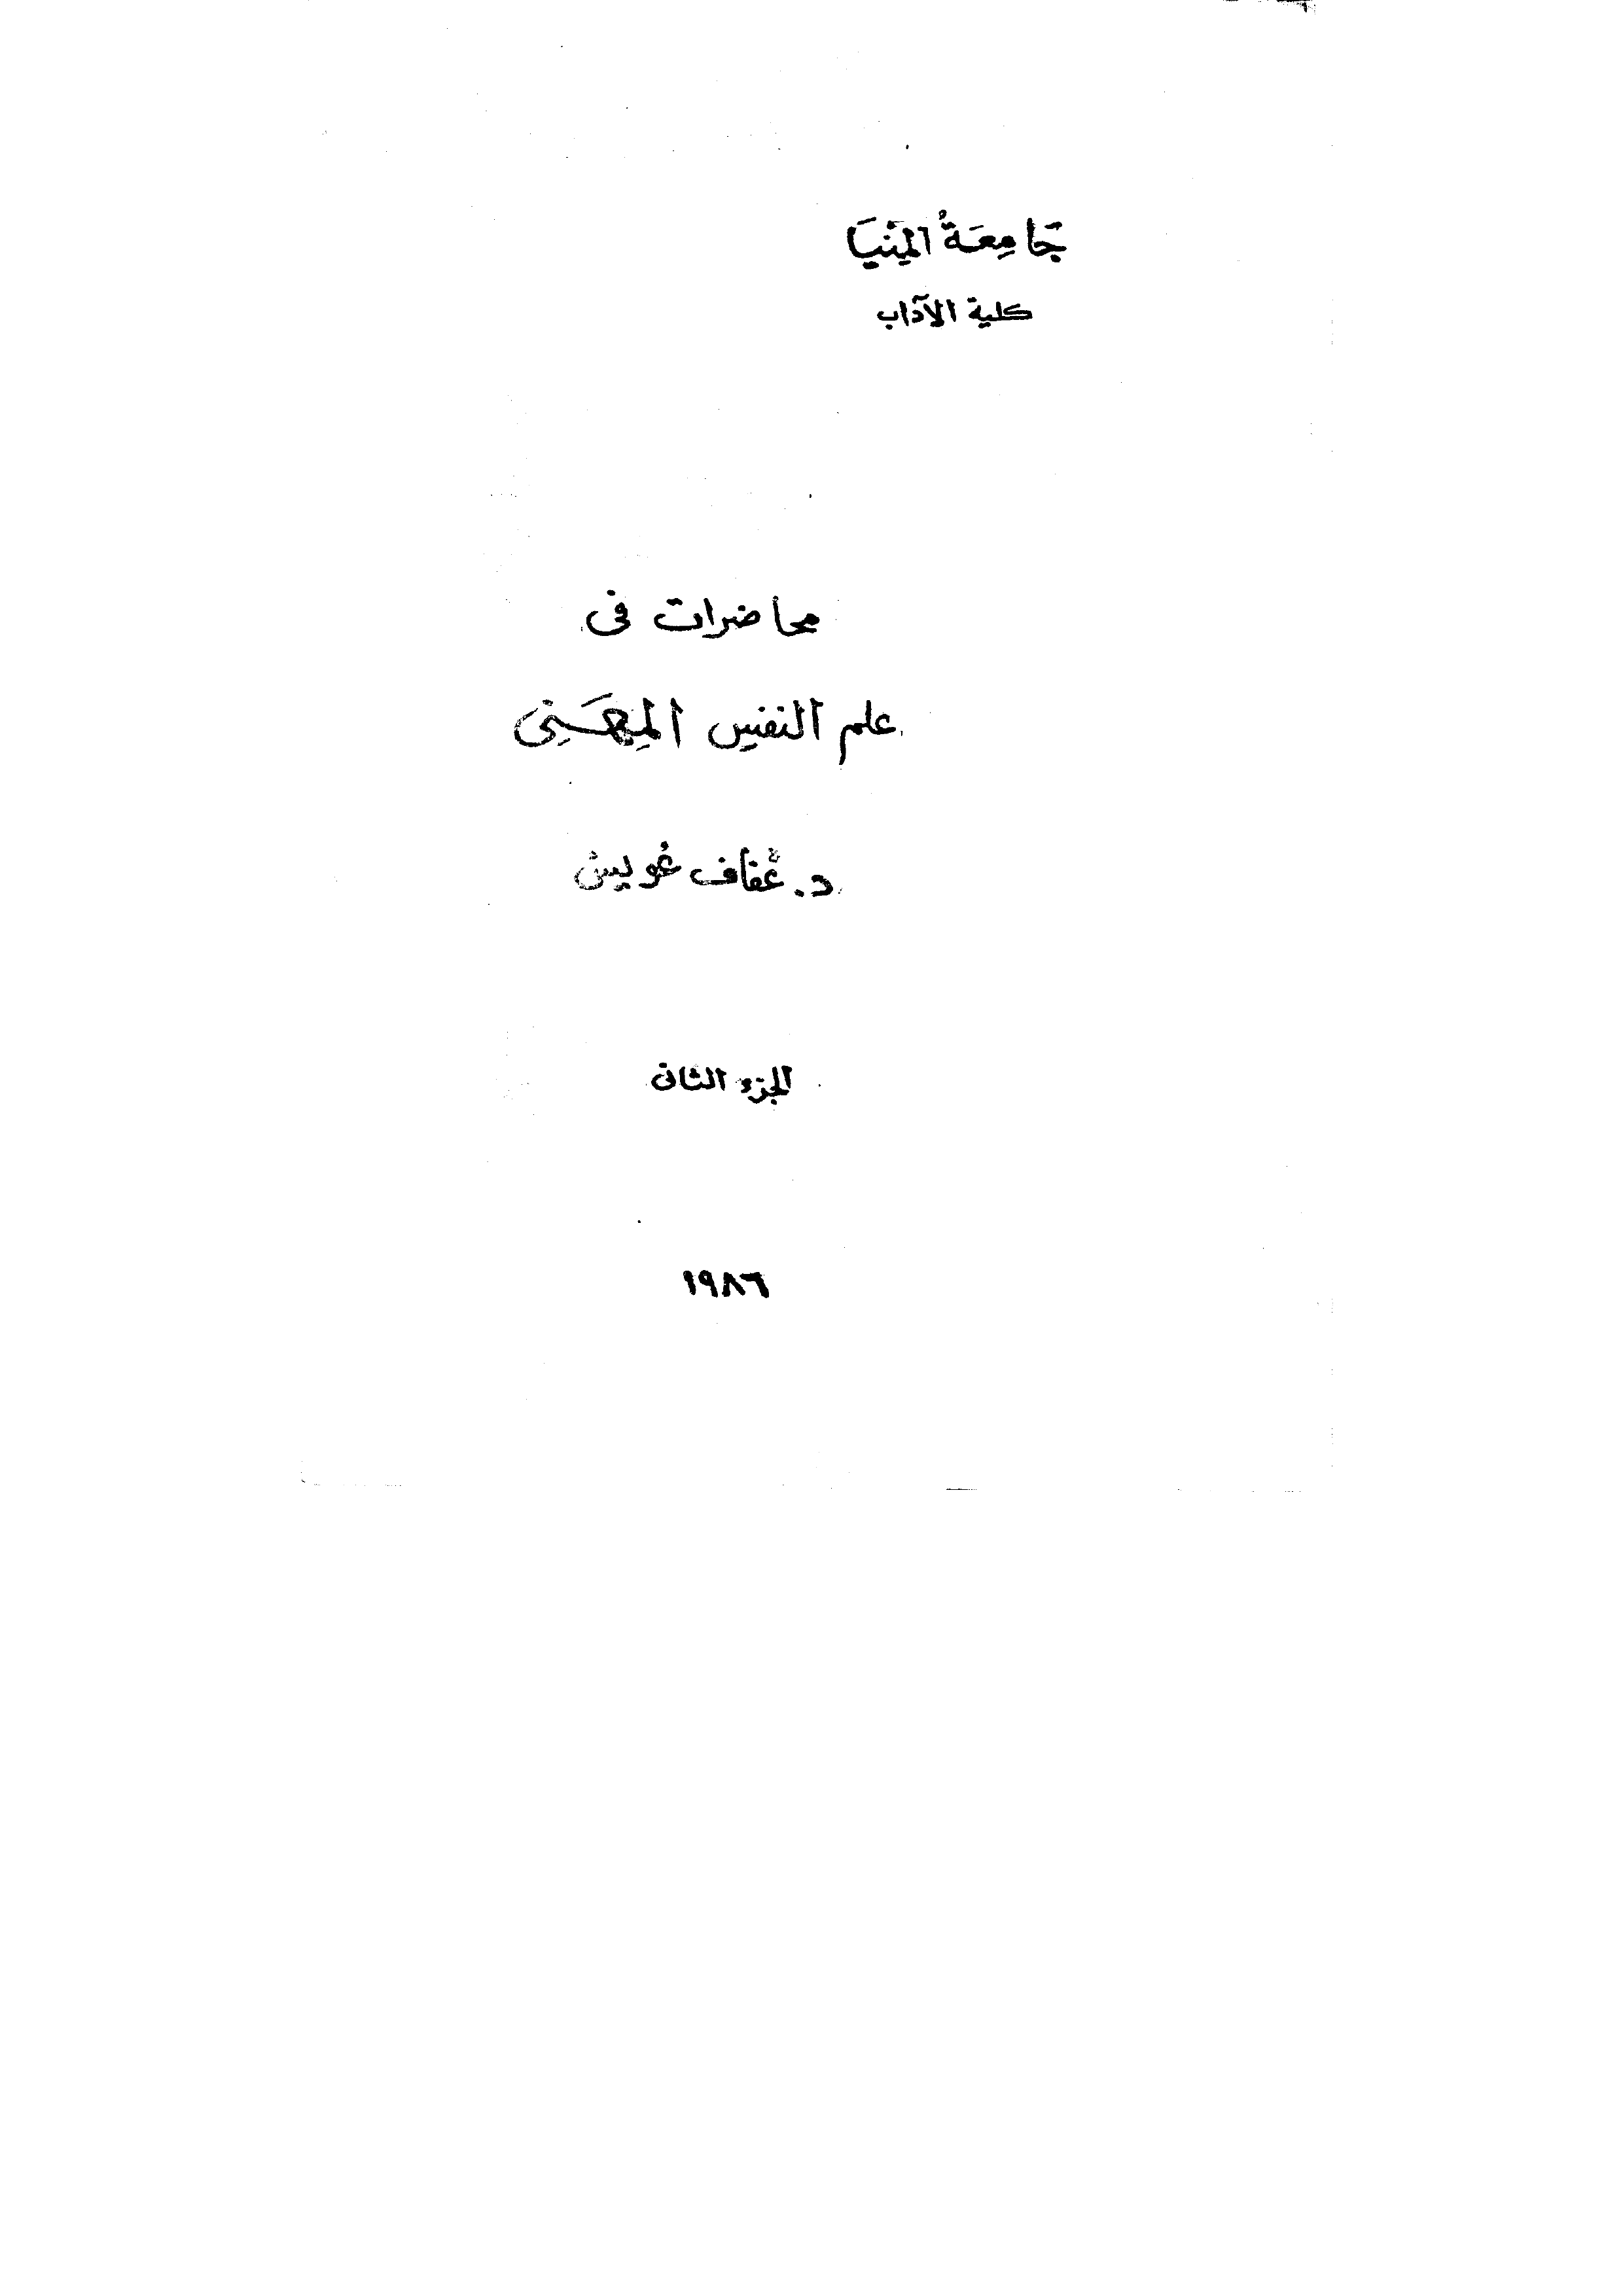 جَامِعَةُ المِنْيَا
كلية الآداب
محاضرات فى
علم النفس المِهَنِى
د. عفاف عويس
الجزء الثانى
١٩٨٦